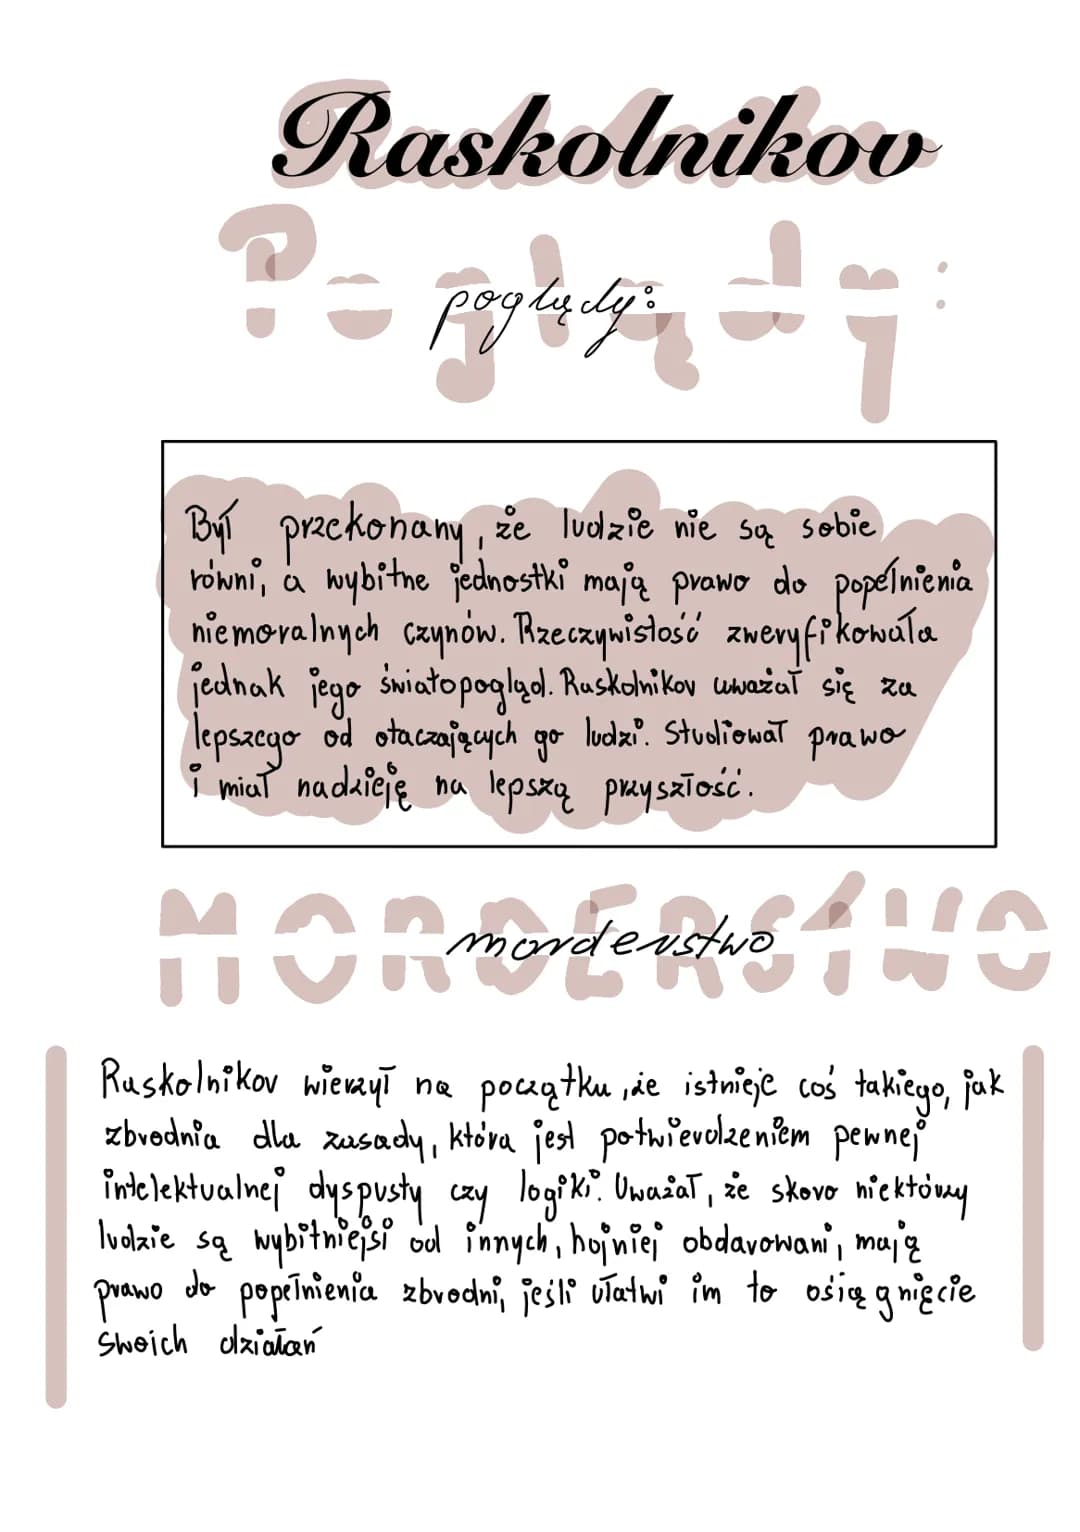 Raskolnikov
Poglądy:
poglądy:
Był przekonany, że ludzie nie są sobie
równi, a wybitne jednostki mają prawo do popełnienia
niemoralnych czynów. Rzeczywistość zweryfikowała
jednak jego światopogląd. Raskolnikov uważał się za
lepszego od otaczających go ludzi. Studiował prawo
i miał nadzieję na lepszą przyszłość.
MORDERSTWO
morderstwo
Raskolnikov wierzył na początku, że istnieje coś takiego, jak
zbrodnia dla zasady, która jest potwierdzeniem pewnej
intelektualnej dyspusty czy logiki. Uważał, że skoro niektórzy
ludzie są wybitniejsi od innych, hojniej obdarowani, mają
prawo do popełnienia zbrodni, jeśli ułatwi im to osiągnięcie
swoich działań